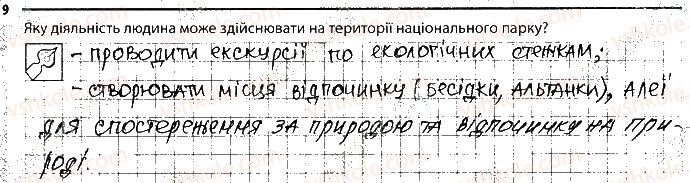 9
Яку діяльність людина може здійснювати на території національного парку?
- проводити екскурсії по екологічних стежкам;
- створювати місця відпочинку (бесідки, альтанки), алеї
для спостереження за природою та відпочинку на при-
роді.